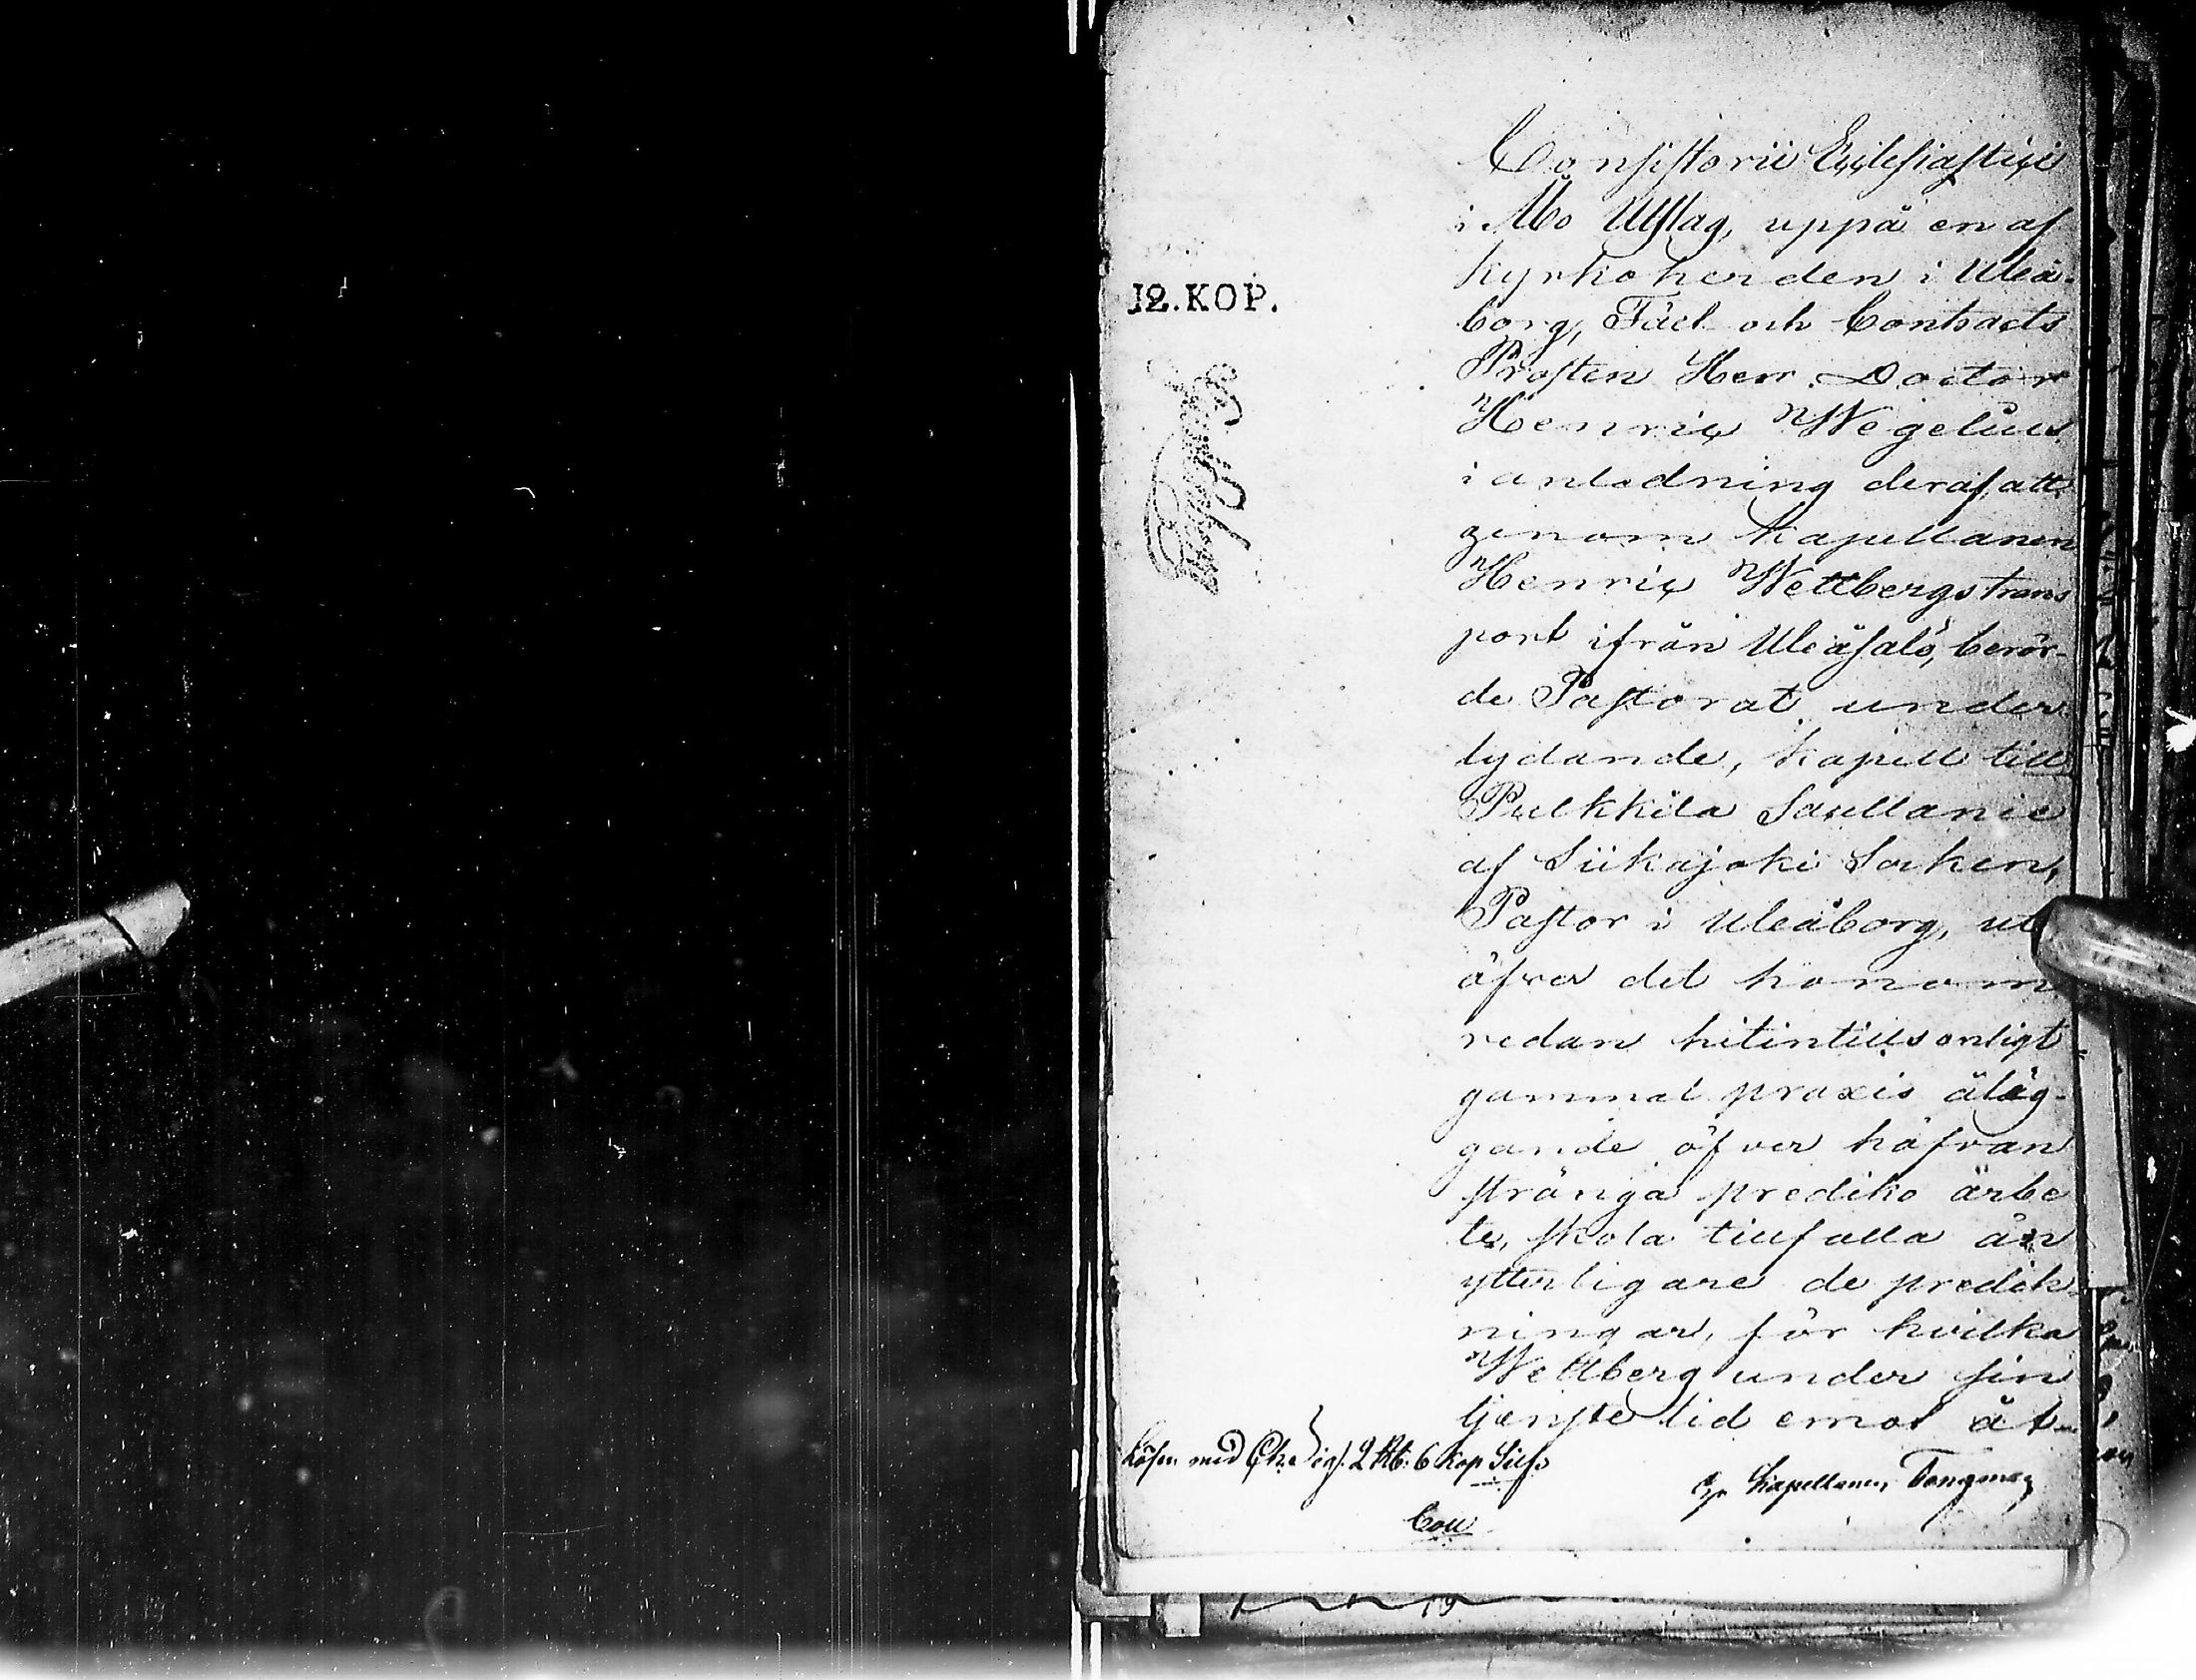 Consistorii Ecclesiastici
i Åbo Utslag, uppå en af
Kyrkoherden i Uleå-
borg, Fäel och Contracts
Prosten Herr Doctor
Henric Wegelius
i anledning deraf, att
genom Kapellanen
Henric Wettbergs trans
port ifrån Uleåsalo, berör-
de Pastorat under
lydande, Kapell till
Pulkkila Sacellanie
af Siikajoki Socken,
Pastor i Uleåborg, ut
öfver det honom
redan hitintills enligt
gammal praxis ålig-
gande öfver höfvan
stränga prediko arbe
te, skola tillfalla än
ytterligare de predik-
ningar, för hvilka
Wettberg under sin
tjenste tid emot åt-
12.KOP.
Lösen med Ch. Sigl. 2 Rb: 6 Kop Silfr
Coll
Kapellanen